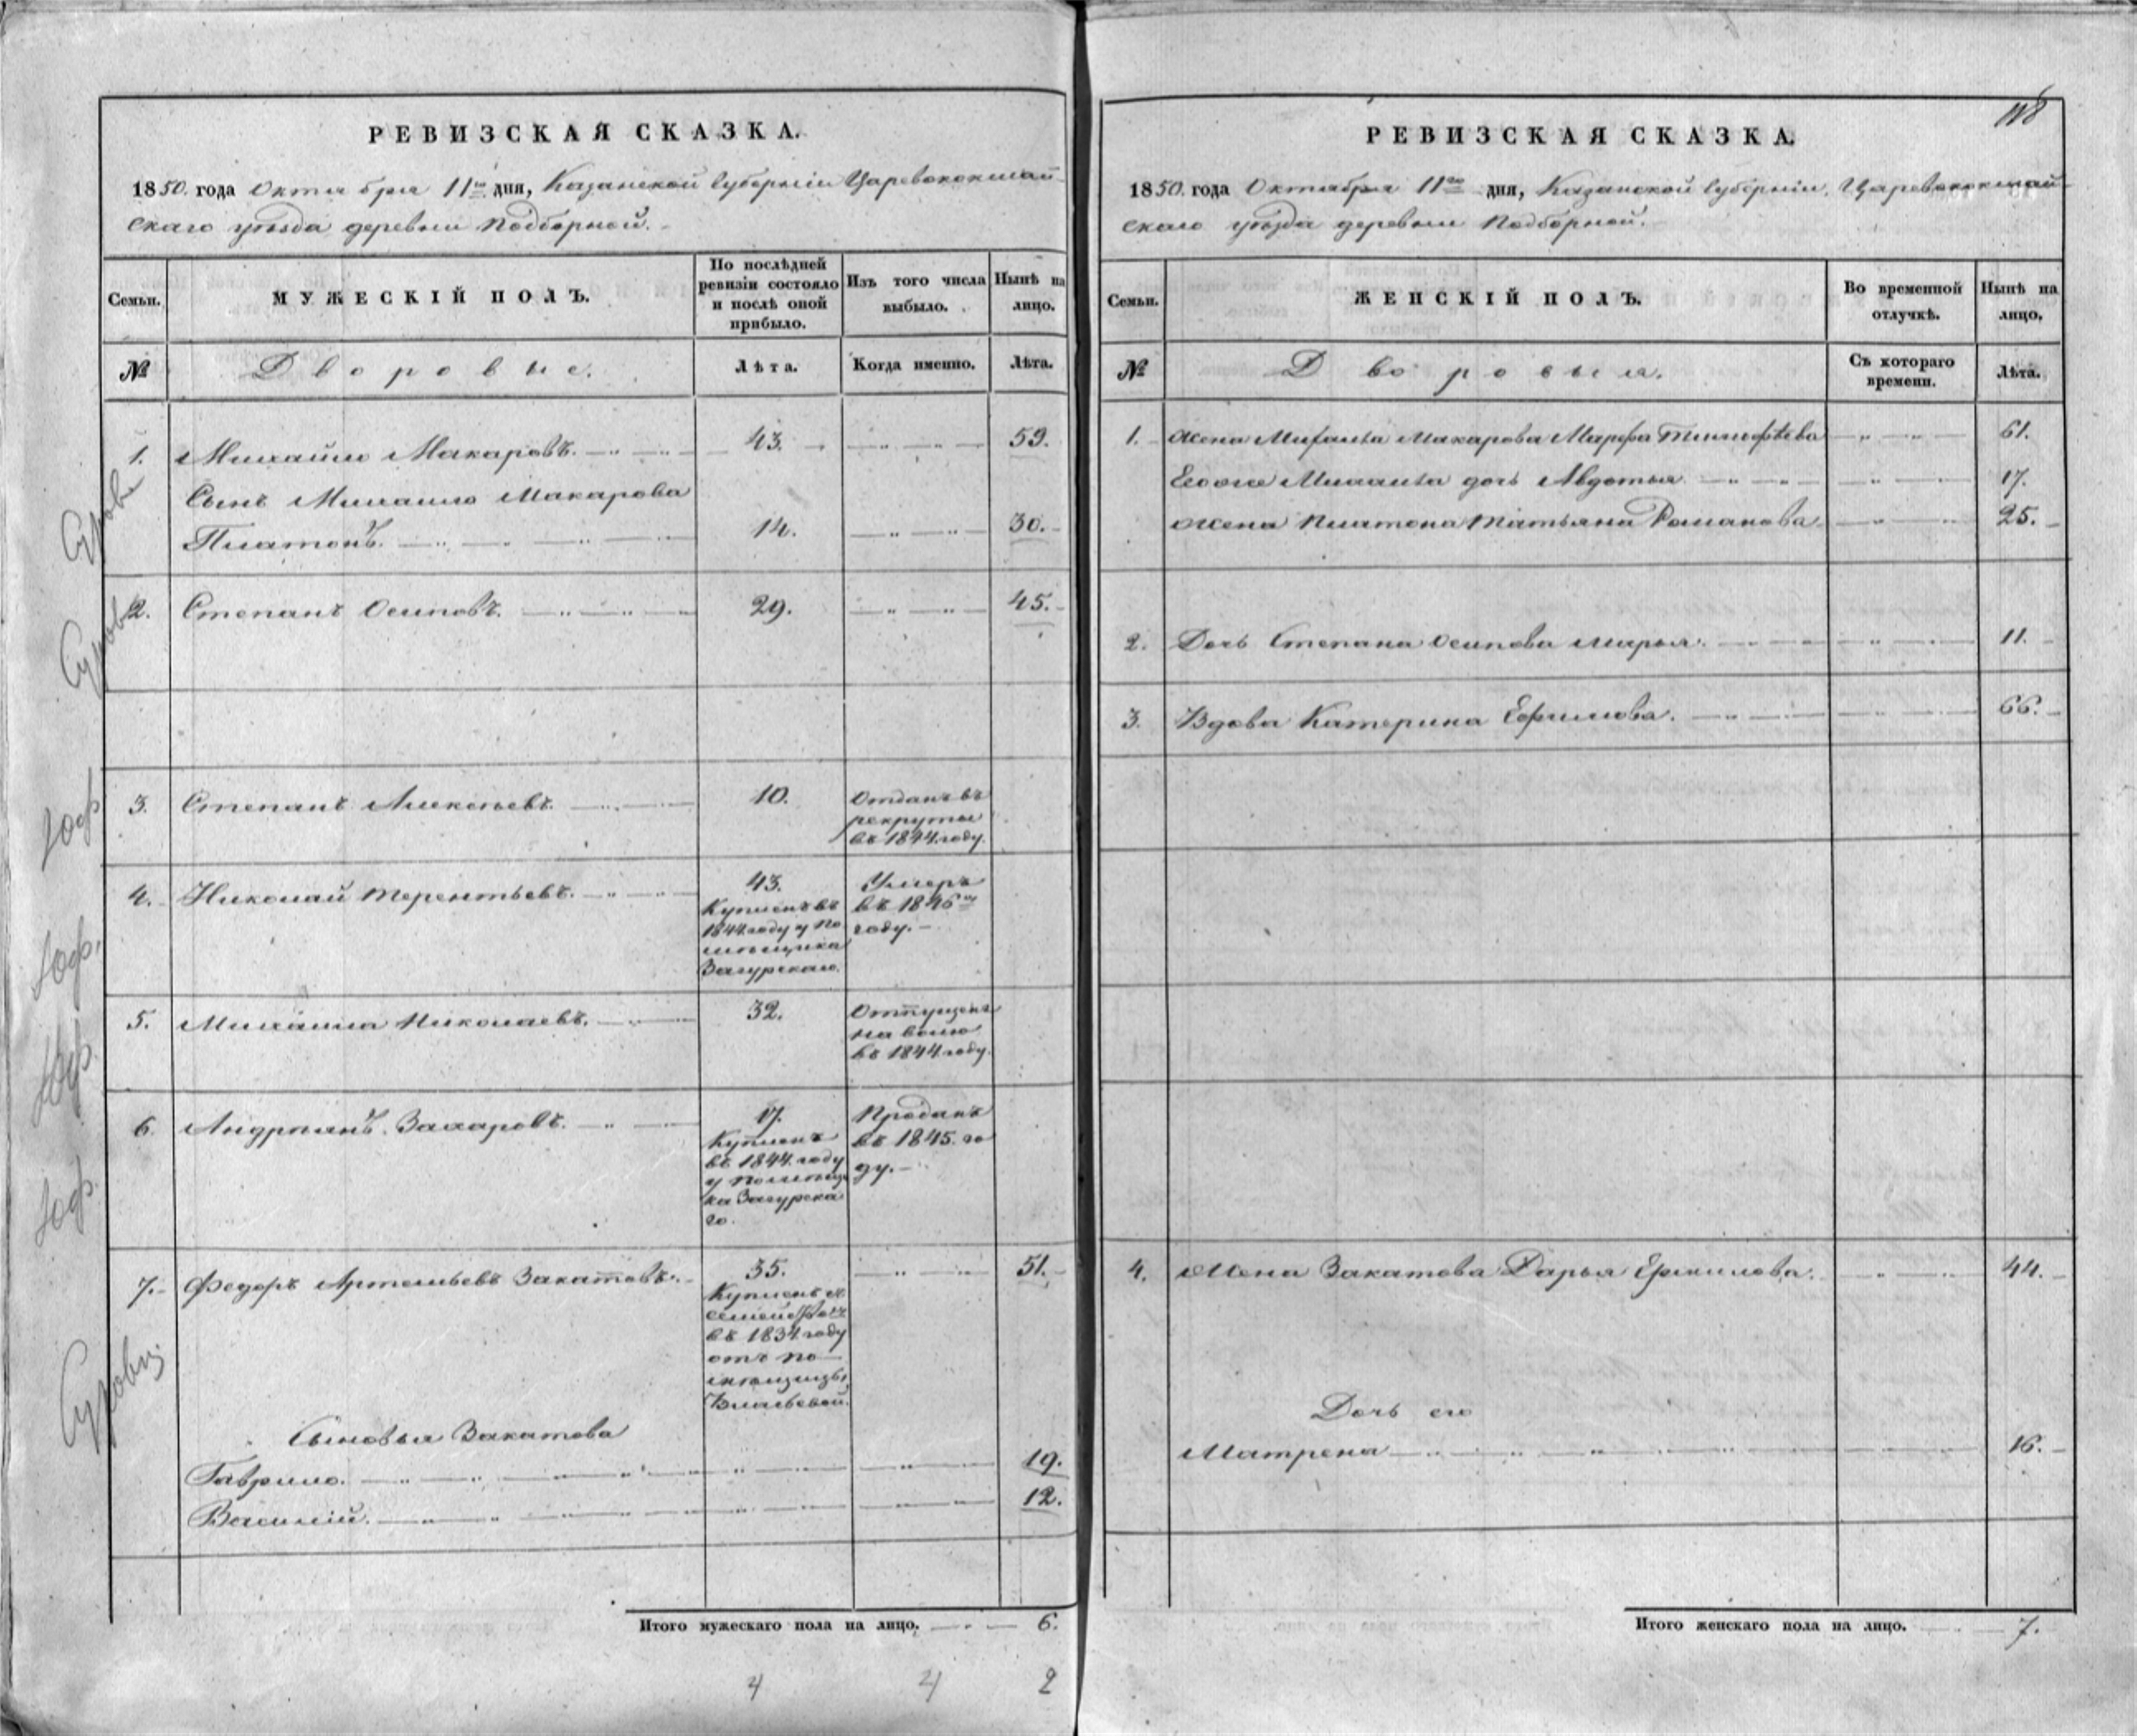 РЕВИЗСКАЯ СКАЗКА.
1850. года Октября 11го дня, Казанской Губерніи Царевококшай-
скаго уѣзда деревни Подборной.
Семьи.
МУЖЕСКІЙ ПОЛЪ.
По послѣдней ревизіи состояло и послѣ оной прибыло.
Изъ того числа выбыло.
Нынѣ на лицо.
№
Дворовые.
Лѣта.
Когда именно.
Лѣта.
1. Михайло Макаровъ. 43. 59.
Сынъ Михайло Макарова
Платонъ. 14. 30.
2. Степанъ Осиповъ. 29. 45.
3. Степанъ Алексѣевъ. 10. Отданъ въ
рекруты
въ 1844 году.
4. Николай Терентьевъ. 43. Умеръ
Купленъ въ въ 1846м
1844 году у По году.
мѣщика
Загурскаго.
5. Михайла Николаевъ. 32. Отпущенъ
на волю
въ 1844 году.
6. Андріянъ Захаровъ. 17. Проданъ
Купленъ въ 1845. го
въ 1844 году ду.
у Помѣщи
ка Загурска
го.
7. Федоръ Артемьевъ Закатовъ. 35. 51.
Купленъ
въ 1834 году
отъ по
мѣщицы
Сыновья Закатова
Гаврило. 19.
Василій. 12.
Итого мужескаго пола на лицо. 6.
4 4 2
118
РЕВИЗСКАЯ СКАЗКА.
1850. года Октября 11го дня, Казанской Губерніи, Царевококшай-
скаго уѣзда деревни Подборной.
Семьи.
ЖЕНСКІЙ ПОЛЪ.
Во временной отлучкѣ.
Нынѣ на лицо.
№
Дворовыя.
Съ котораго времени.
Лѣта.
1. Жена Михайла Макарова Марфа Тимофѣева 61.
Михайла дочь Авдотья 17.
Жена Платона Татьяна Романова 25.
2. Дочь Степана Осипова Марья. 11.
3. Вдова Катерина Ефимова. 66.
4. Жена Закатова Дарья Ермилова. 44.
Дочь его
Матрена 16.
Итого женскаго пола на лицо. 7.